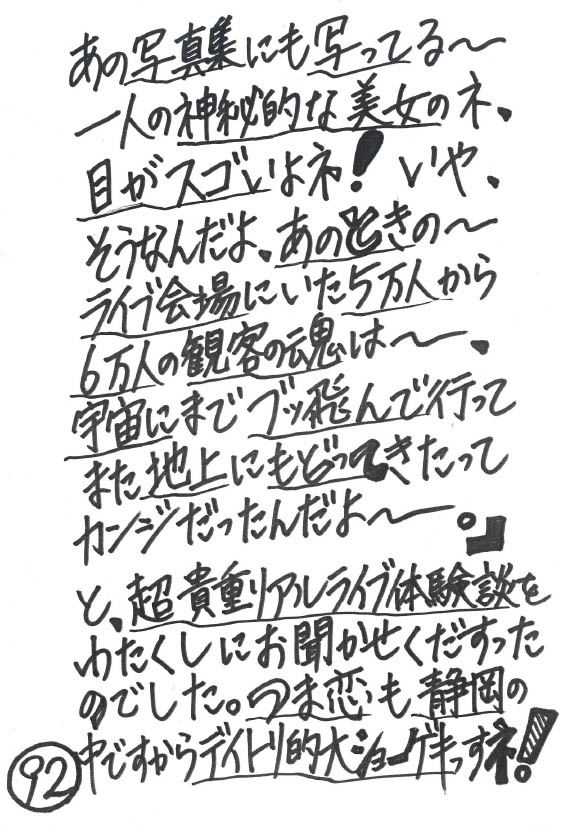 あの写真集にも写ってる〜
一人の神秘的な美女のネ、
目がスゴいよネ！いや、
そうなんだよ、あのときの〜
ライブ会場にいた5万人から
6万人の観客の魂は〜、
宇宙にまでブッ飛んで行って
また地上にもどってきたって
カンジだったんだよ〜。』
と、超貴重リアルライブ体験談を
わたくしにお聞かせくだすった
のでした。つま恋も静岡の
中ですからデイトリ的大ショーゲキっすネ！
92